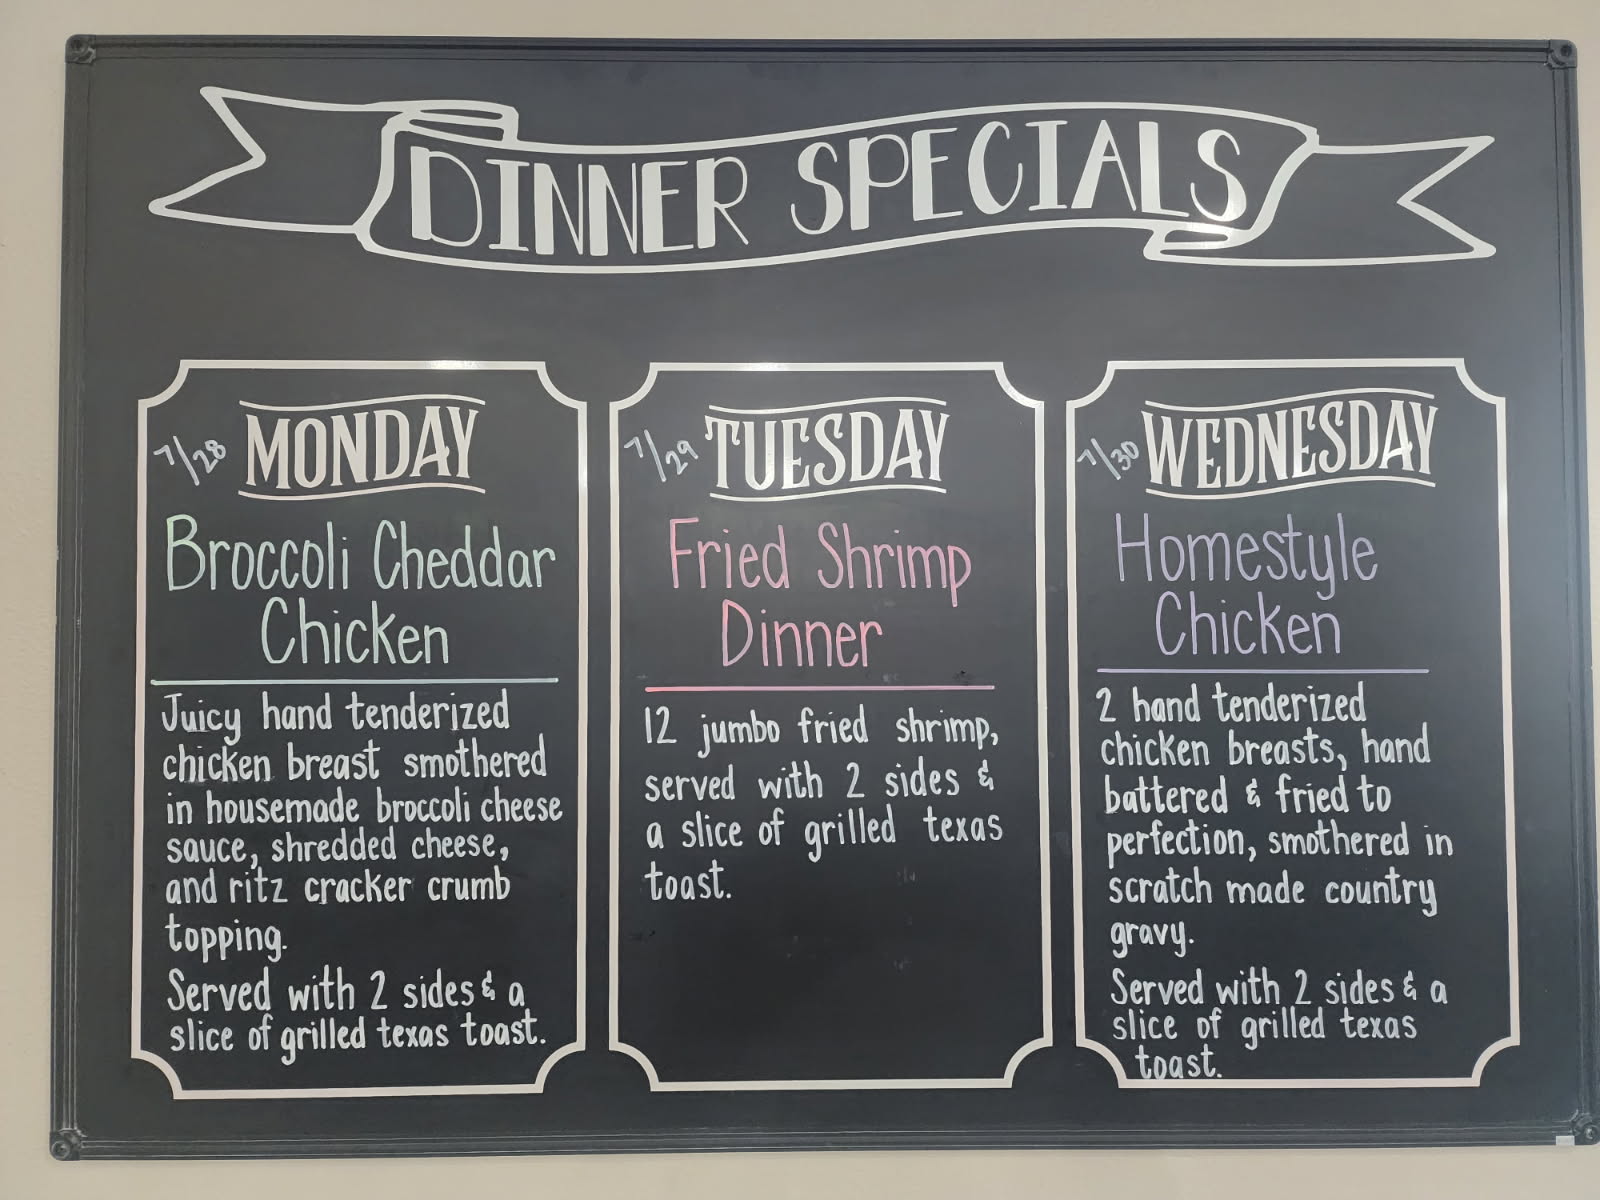 DINNER SPECIALS
7/28 MONDAY
Broccoli Cheddar
Chicken
Juicy hand tenderized
chicken breast smothered
in housemade broccoli cheese
sauce, shredded cheese,
and ritz cracker crumb
topping.
Served with 2 sides & a
slice of grilled texas toast.
7/29 TUESDAY
Fried Shrimp
Dinner
12 jumbo fried shrimp,
served with 2 sides &
a slice of grilled texas
toast.
7/30 WEDNESDAY
Homestyle
Chicken
2 hand tenderized
chicken breasts, hand
battered & fried to
perfection, smothered in
scratch made country
gravy.
Served with 2 sides & a
slice of grilled texas
toast.